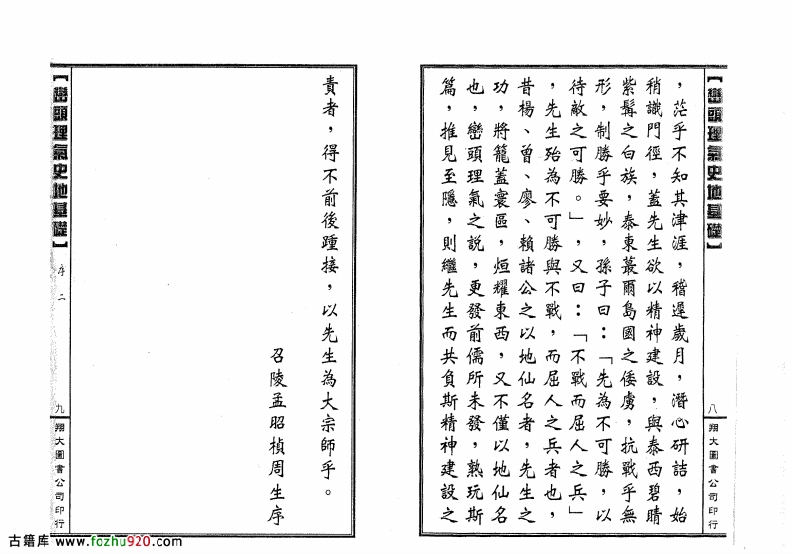 【巒頭理氣史地基礎】
八
翔大圖書公司印行
，茫乎不知其津涯，稽遲歲月，潛心研詰，始
稍識門徑，蓋先生欲以精神建設，與泰西碧睛
紫髯之白族，泰東蕞爾島國之倭虜，抗戰乎無
形，制勝乎要妙，孫子曰：「先為不可勝，以
待敵之可勝。」，又曰：「不戰而屈人之兵」
，先生殆為不可勝與不戰，而屈人之兵者也，
昔楊、曾、廖、賴諸公之以地仙名者，先生之
功，將籠蓋寰區，烜耀東西，又不僅以地仙名
也，巒頭理氣之說，更發前儒所未發，熟玩斯
篇，推見至隱，則繼先生而共負斯精神建設之
責者，得不前後踵接，以先生為大宗師乎。
召陵孟昭楨周生序
【巒頭理氣史地基礎】
序二
九
翔大圖書公司印行
古籍库 www.fozhu920.com